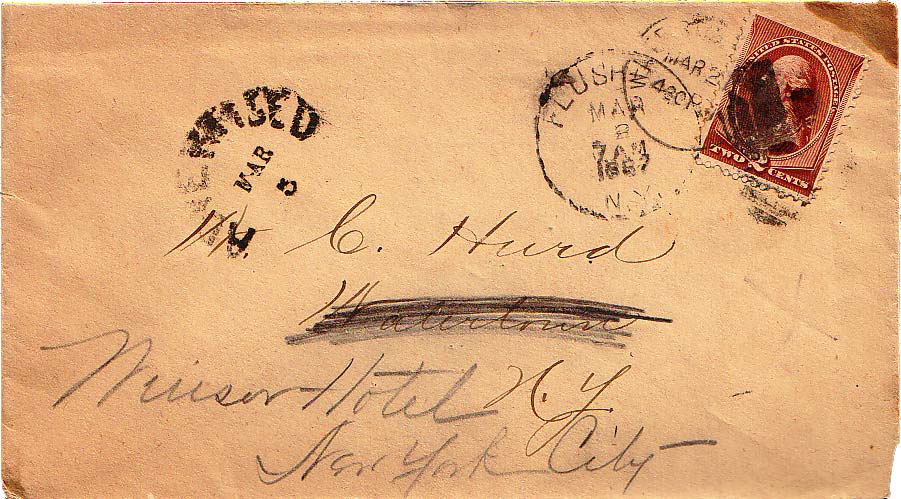 FLUSHING
MAR
2
7 AM
1887
N.Y.
MAR 2
430P
UNITED STATES POSTAGE
TWO 2 CENTS
MAR
5
Mr. C. Hurd
Watertown
N. Y.
Winsor Hotel
New York City